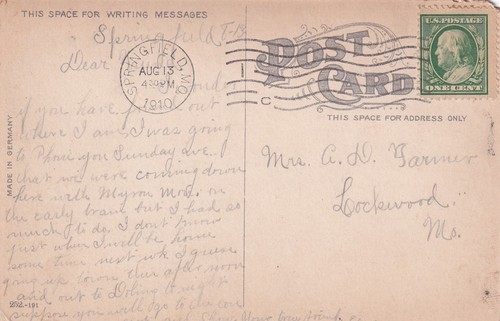 THIS SPACE FOR WRITING MESSAGES
Springfield 8-13
Dear
if you have found out
where I am. I was going
to Phone you Sunday eve.
that we were coming down
here with Myron Mon. on
the early train but I had so
much to do. I don't know
just when I will be home
some time next wk I guess
going up town this afternoon
and out to to night
suppose you will go to the
SPRINGFIELD, MO.
AUG 13
4 30 PM
1910
POST CARD
U.S. POSTAGE
ONE CENT
THIS SPACE FOR ADDRESS ONLY
Mrs. A. D. Farmer
Lockwood,
Mo.
MADE IN GERMANY